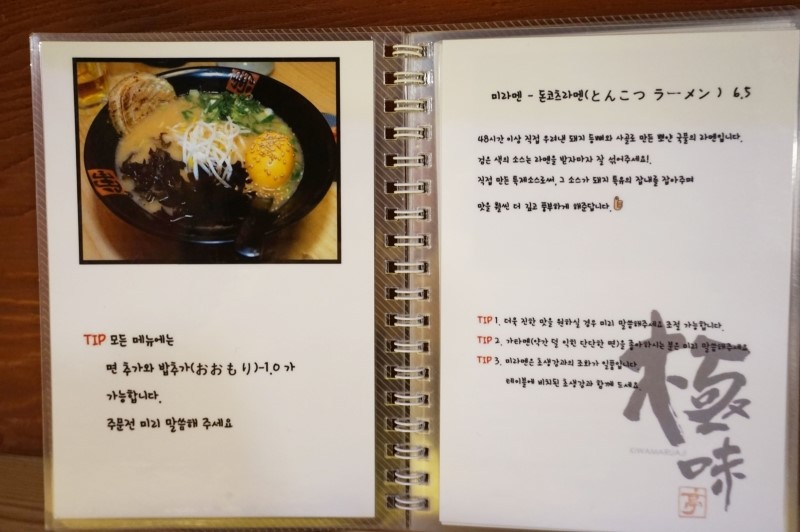 TIP 모든 메뉴에는
면 추가와 밥추가(おおもり)-1.0 가
가능합니다.
주문전 미리 말씀해 주세요
미라멘 - 돈코츠라멘(とんこつ ラーメン) 6.5
48시간 이상 직접 우려낸 돼지 등뼈와 사골로 만든 뽀얀 국물의 라멘입니다.
검은 색의 소스는 라멘을 받자마자 잘 섞어주세요!
직접 만든 특제소스로써, 그 소스가 돼지 특유의 잡내를 잡아주며
맛을 훨씬 더 깊고 풍부하게 해준답니다.
TIP 1. 더욱 진한 맛을 원하실 경우 미리 말씀해주세요 조절 가능합니다.
TIP 2. 카타멘(약간 덜 익힌 단단한 면)을 좋아하시는 분은 미리 말씀해주세요
TIP 3. 미라멘은 초생강과의 조화가 일품입니다
테이블에 비치된 초생강과 함께 드세요
極
味